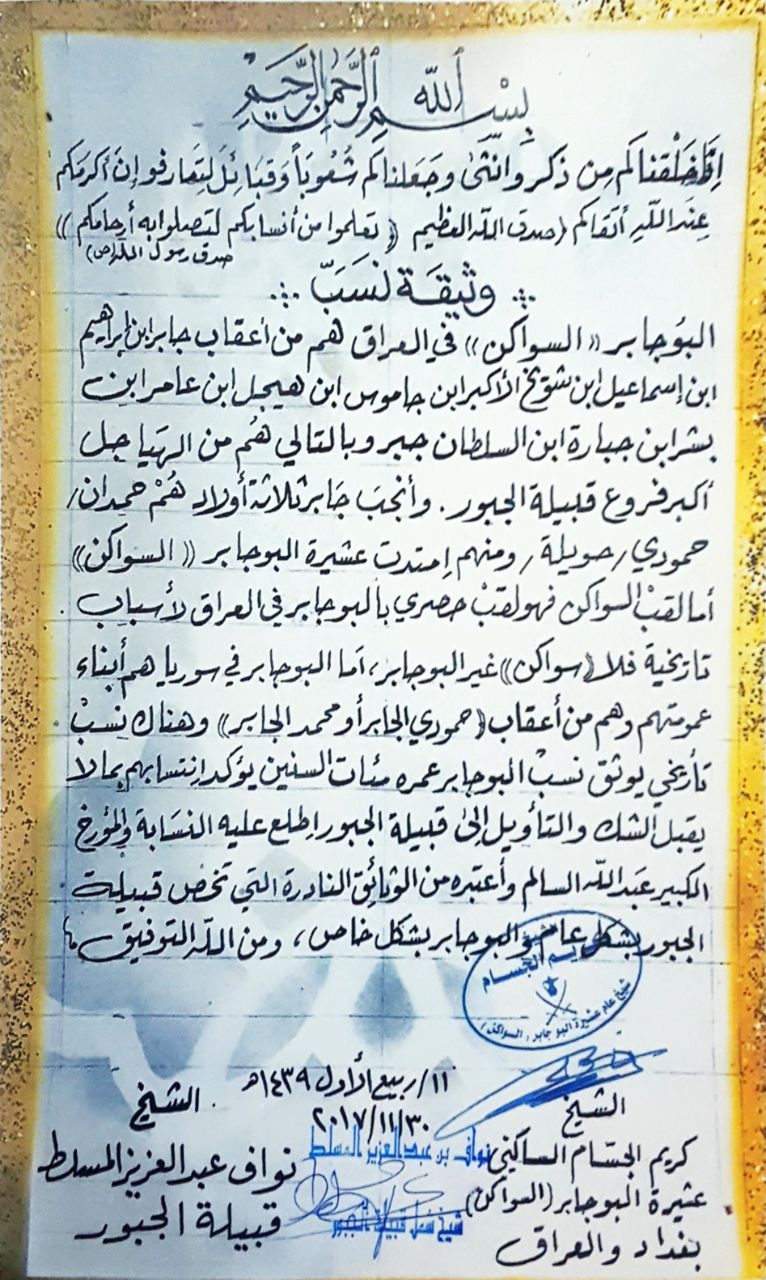 بسم الله الرحمن الرحيم
إنا خلقناكم من ذكر وانثى وجعلناكم شعوباً وقبائل لتعارفو إن أكرمكم
عند الله أتقاكم (صدق الله العظيم ((تعلموا من أنسابكم لتصلوا به أرحامكم))
صدق رسول الله (ص)
وثيقة نسب
البوجابر ((السواكن)) في العراق هم من أعقاب جابر ابن إبراهيم
ابن إسماعيل ابن شويخ الأكبر ابن جاموس ابن هيجل ابن عامر ابن
بشر ابن جبارة ابن السلطان جبر وبالتالي هم من الهياجل
أكبر فروع قبيلة الجبور. وأنجب جابر ثلاثة أولاد همْ حمدان/
حمودي/ حويلة/ ومنهم إمتدت عشيرة البوجابر ((السواكن))
أما لقبْ السواكن فهو لقبْ حصري بالبوجابر في العراق لأسباب .
تاريخية فلا ((سواكن)) غير البوجابر، أما البوجابر في سوريا هم أبناء
عمومتهم وهم من أعقاب (حمودي الجابر أو محمد الجابر)) وهناك نسبْ .
تأريخي يوثق نسبْ البوجابر عمره مئات السنين يؤكد إنتسابهم بما لا
يقبل الشك والتأويل إلى قبيلة الجبور إطلع عليه النسابة والمؤرخ
الكبير عبد الله السالم وأعتبره من الوثائق النادرة التي تخص قبيلة .
الجبور بشكل عام والبوجابر بشكل خاص، ومن الله التوفيق
الجسام
شيخ عام عشيرة البو جابر (السواكن)
١١/ ربيع الأول ١٤٣٩هـ
٢٠١٧/١١/٣٠
الشيخ
كريم الجسّام الساكني
عشيرة البوجابر (السواكن)
بغداد والعراق
نواف بن عبدالعزيز المسلط
شيخ شمل قبيلة الجبور
الشيخ
نواف عبدالعزيز المسلط
قبيلة الجبور